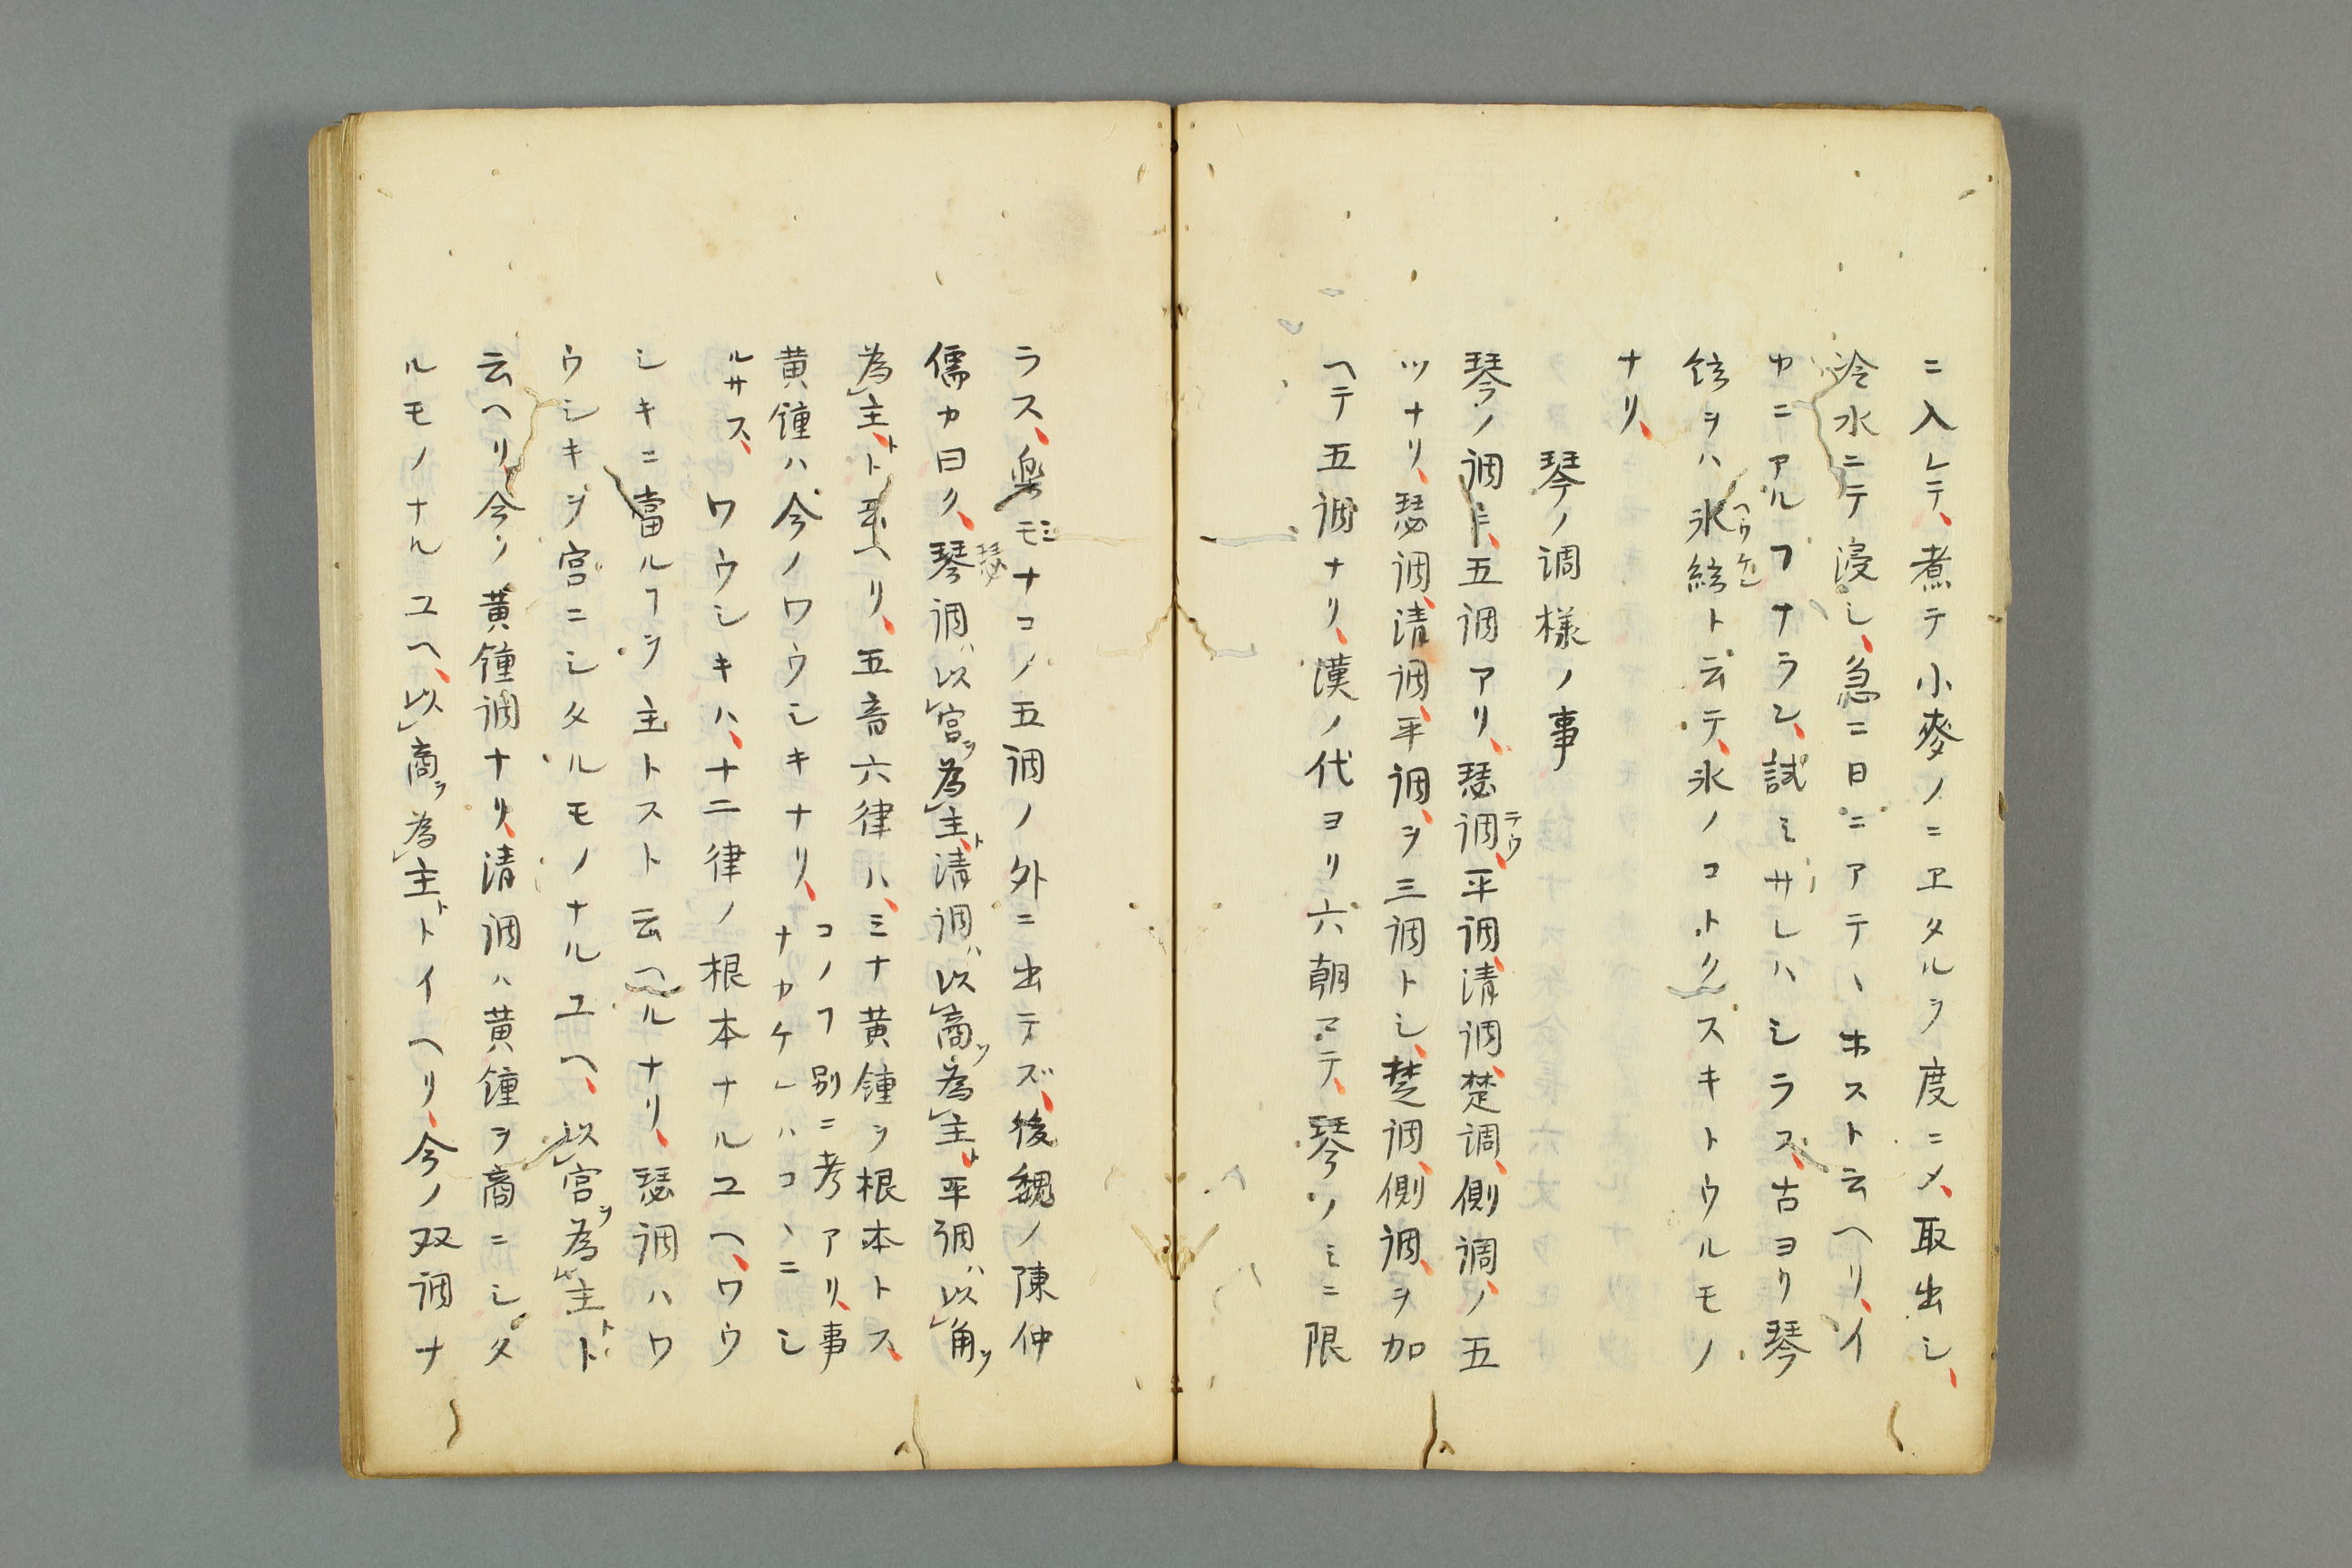 ニ入レテ、煮テ小麥ノニヱタルヲ度ニメ、取出シ、
冷水ニテ浸シ、急ニ日ニアテヽホスト云ヘリ、イ
カニアルヿナラン、試ミサレハシラス、古ヨリ琴
絃ヲハ氷絃ト云テ、氷ノコトクスキトウルモノ
ナリ、
琴ノ調様ノ事
琴ノ調ニ、五調アリ、瑟調、平調、清調、楚調、側調、ノ五
ツナリ、瑟調、清調、平調、ヲ三調トシ、楚調、側調、ヲ加
ヘテ五調ナリ、漢ノ代ヨリ六朝マテ、琴ノミニ限
ラス、楽モミナコノ五調ノ外ニ出テズ、後魏ノ陳仲
儒カ曰ク、琴瑟調ハ以宮ヲ為主ト、清調ハ以商ヲ為主ト、平調ハ以角ヲ
為主トト云ヘリ、五音六律ハ、ミナ黄鐘ヲ根本トス、
黄鐘ハ今ノワウシキナリ、コノヿ別ニ考アリ、事
ナカケレハコヽニシ
ルサス、ワウシキハ、十二律ノ根本ナルユヘ、ワウ
シキニ當ルヿヲ主トスト云ヘルナリ、瑟調ハワ
ウシキヲ宮ニシタルモノナルユヘ、以宮ヲ為主トト
云ヘリ、今ノ黄鐘調ナリ、清調ハ黄鐘ヲ商ニシタ
ルモノナルユヘ、以商ヲ為主トトイヘリ、今ノ双調ナ